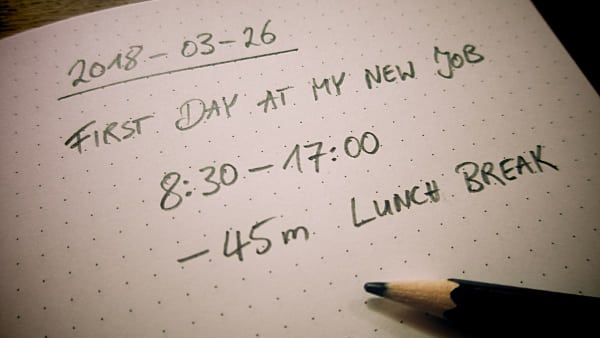 2018-03-26
FIRST DAY AT MY NEW JOB
8:30 - 17:00
- 45m LUNCH BREAK